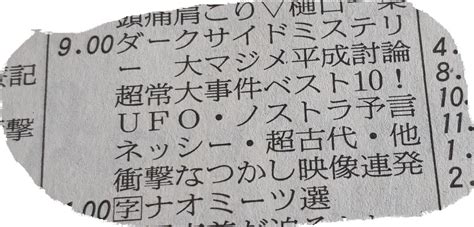 頭痛肩こり▽樋口一葉
9.00ダークサイドミステリ
ー 大マジメ平成討論
超常大事件ベスト10!
UFO・ノストラ予言
ネッシー・超古代・他
衝撃なつかし映像連発
.00字ナオミーツ選
記
撃
4.
8.
10.
11
1.
2.